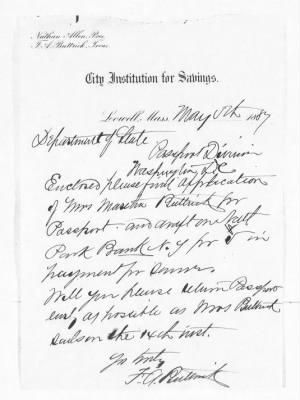 Nathan Allen, Pres.
F. A. Buttrick, Treas.
City Institution for Savings.
Lowell, Mass. May 5th 1887
Department of State
Passport Division
Washington D.C
Enclosed please find application
of Mrs Martha Buttrick for
Passport - and
Park Bank N.Y for 5 in
payment for same.
Will you please return Passport
as possible as Mrs Buttrick
sails on the 14th inst.
Yrs truly
F. A. Buttrick